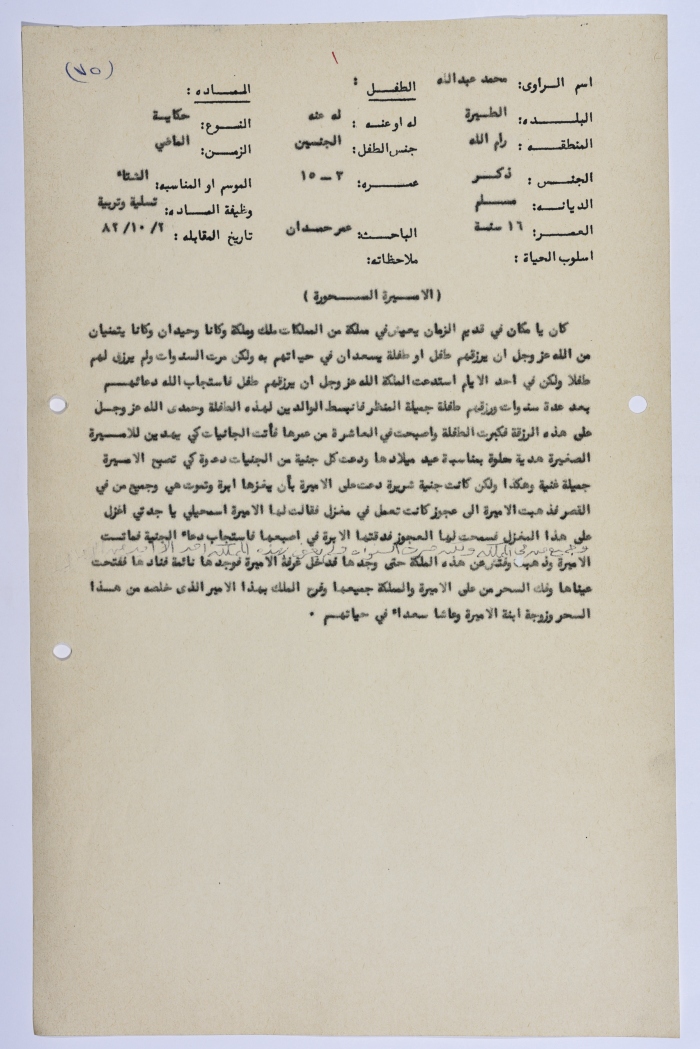 (٧٥)
اسم الراوى: محمد عبدالله الطفل : المـاده :
البلـده: الطيرة له او عنه : له عنه النوع: حكاية
المنطقه : رام الله جنس الطفل: الجنسين الزمن: الماضي
الجنس : ذكر عمـره: ٣ – ١٥ الموسم او المناسبه: الشتاء
الديانه: مسلم وظيفة المـاده: تسلية وتربية
العمـر: ١٦ سنة الباحث: عمر حمدان تاريخ المقابله : ٢/ ١٠/ ٨٢
اسلوب الحياة : ملاحظاته:
( الاميرة المسحورة )
كان يا مكان في قديم الزمان يعيش في مملكة من المملكات ملك وملكة وكانا وحيدان وكانا يتمنيان
من الله عز وجل ان يرزقهم طفل او طفلة يسعدان في حياتهم به ولكن مرت السنوات ولم يرزق لهم
طفلا ولكن في احد الايام استدعت الملكة الله عز وجل ان يرزقهم طفل فاستجاب الله دعائهم
بعد عدة سنوات ورزقهم طفلة جميلة المنظر فانبسط الوالدين لهذه الطفلة وحمدى الله عز وجل
على هذه الرزقة فكبرت الطفلة واصبحت في العاشرة من عمرها فأتت الجانيات كي يهدين للاميرة
الصغيرة هدية حلوة بمناسبة عيد ميلادها ودعت كل جنية من الجنيات دعوة كي تصبح الاميرة
جميلة غنية وهكذا ولكن كانت جنية شريرة دعت على الاميرة بأن يغزها ابرة وتموت هي وجميع من في
القصر فذهبت الاميرة الى عجوز كانت تعمل في مغزل فقالت لها الاميرة اسمحيلي يا جدتي اغزل
على هذا المغزل فسمحت لها العجوز فدقتها الابرة في اصبعها فاستجاب دعاء الجنية فماتست
وجميع من في المملكة ولكنه مرت السنوات ولم يعش بهذه المملكة احد الا
الاميرة وذهب وفتش عن هذه الملكة حتى وجدها فدخل غرفة الاميرة فوجدها نائمة فنادها ففتحت
عيناها وفك السحر من على الاميرة والمملكة جميعها وفرح الملك بهذا الامير الذى خلصه من هذا
السحر وزوجة ابنة الاميرة وعاشا سعداء في حياتهم .